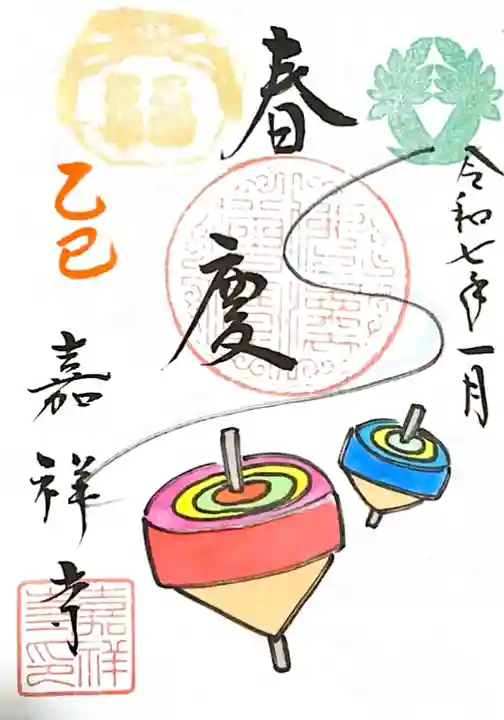 令和七年一月
春慶
乙巳
嘉祥寺
嘉祥寺印